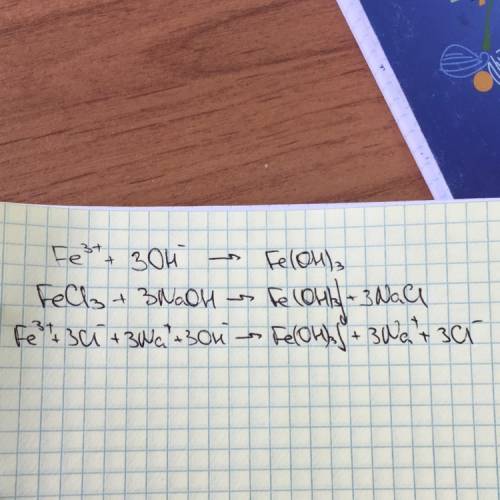 Fe³⁺ + 3OH⁻ → Fe(OH)₃
FeCl₃ + 3NaOH → Fe(OH)₃↓ + 3NaCl
Fe³⁺ + 3Cl⁻ + 3Na⁺ + 3OH⁻ → Fe(OH)₃↓ + 3Na⁺ + 3Cl⁻